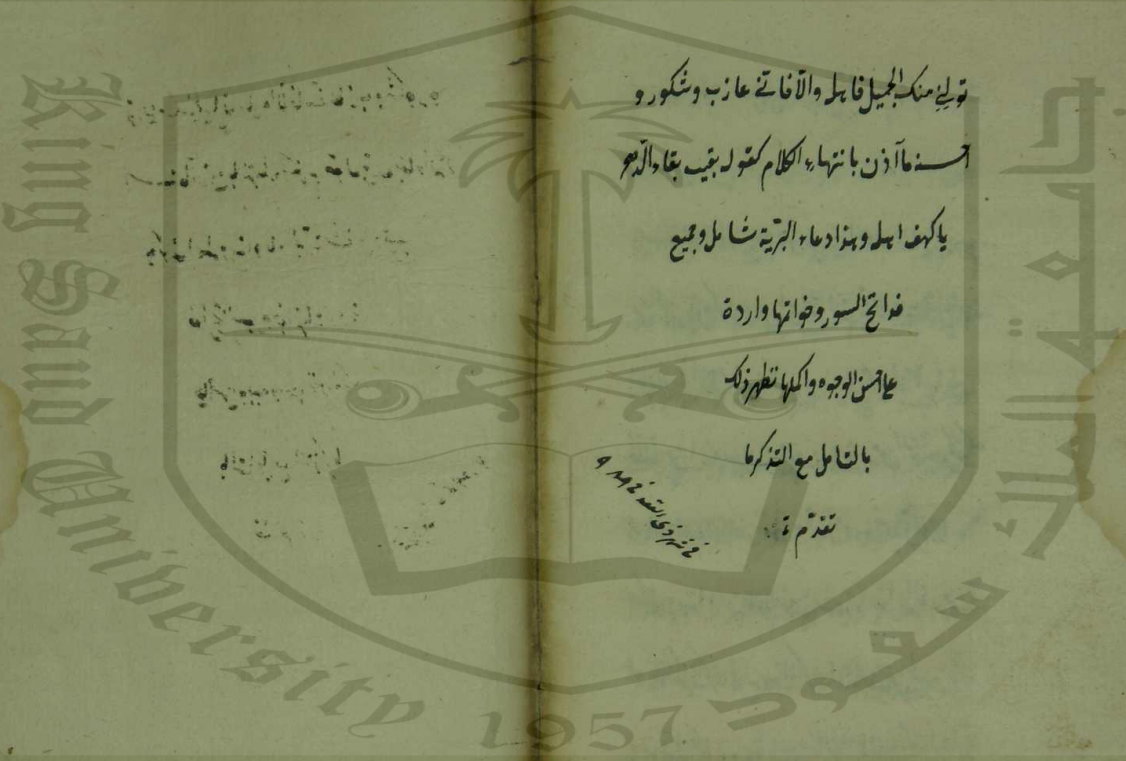 تولنى منك الجميل فاهله والا فانى عاذر وشكور و
احسنه ما آذن بانتهاء الكلام كقوله بقيت بقاء الدهر
يا كهف اهله وهذا دعاء للبرية شامل وجميع
فواتح السور وخواتمها واردة
على احسن الوجوه واكملها تظهر ذلك
بالتامل مع التذكر لما
تقدم تم
فى شهر ذى القعدة
King Saud University
1957
جامعة الملك سعود